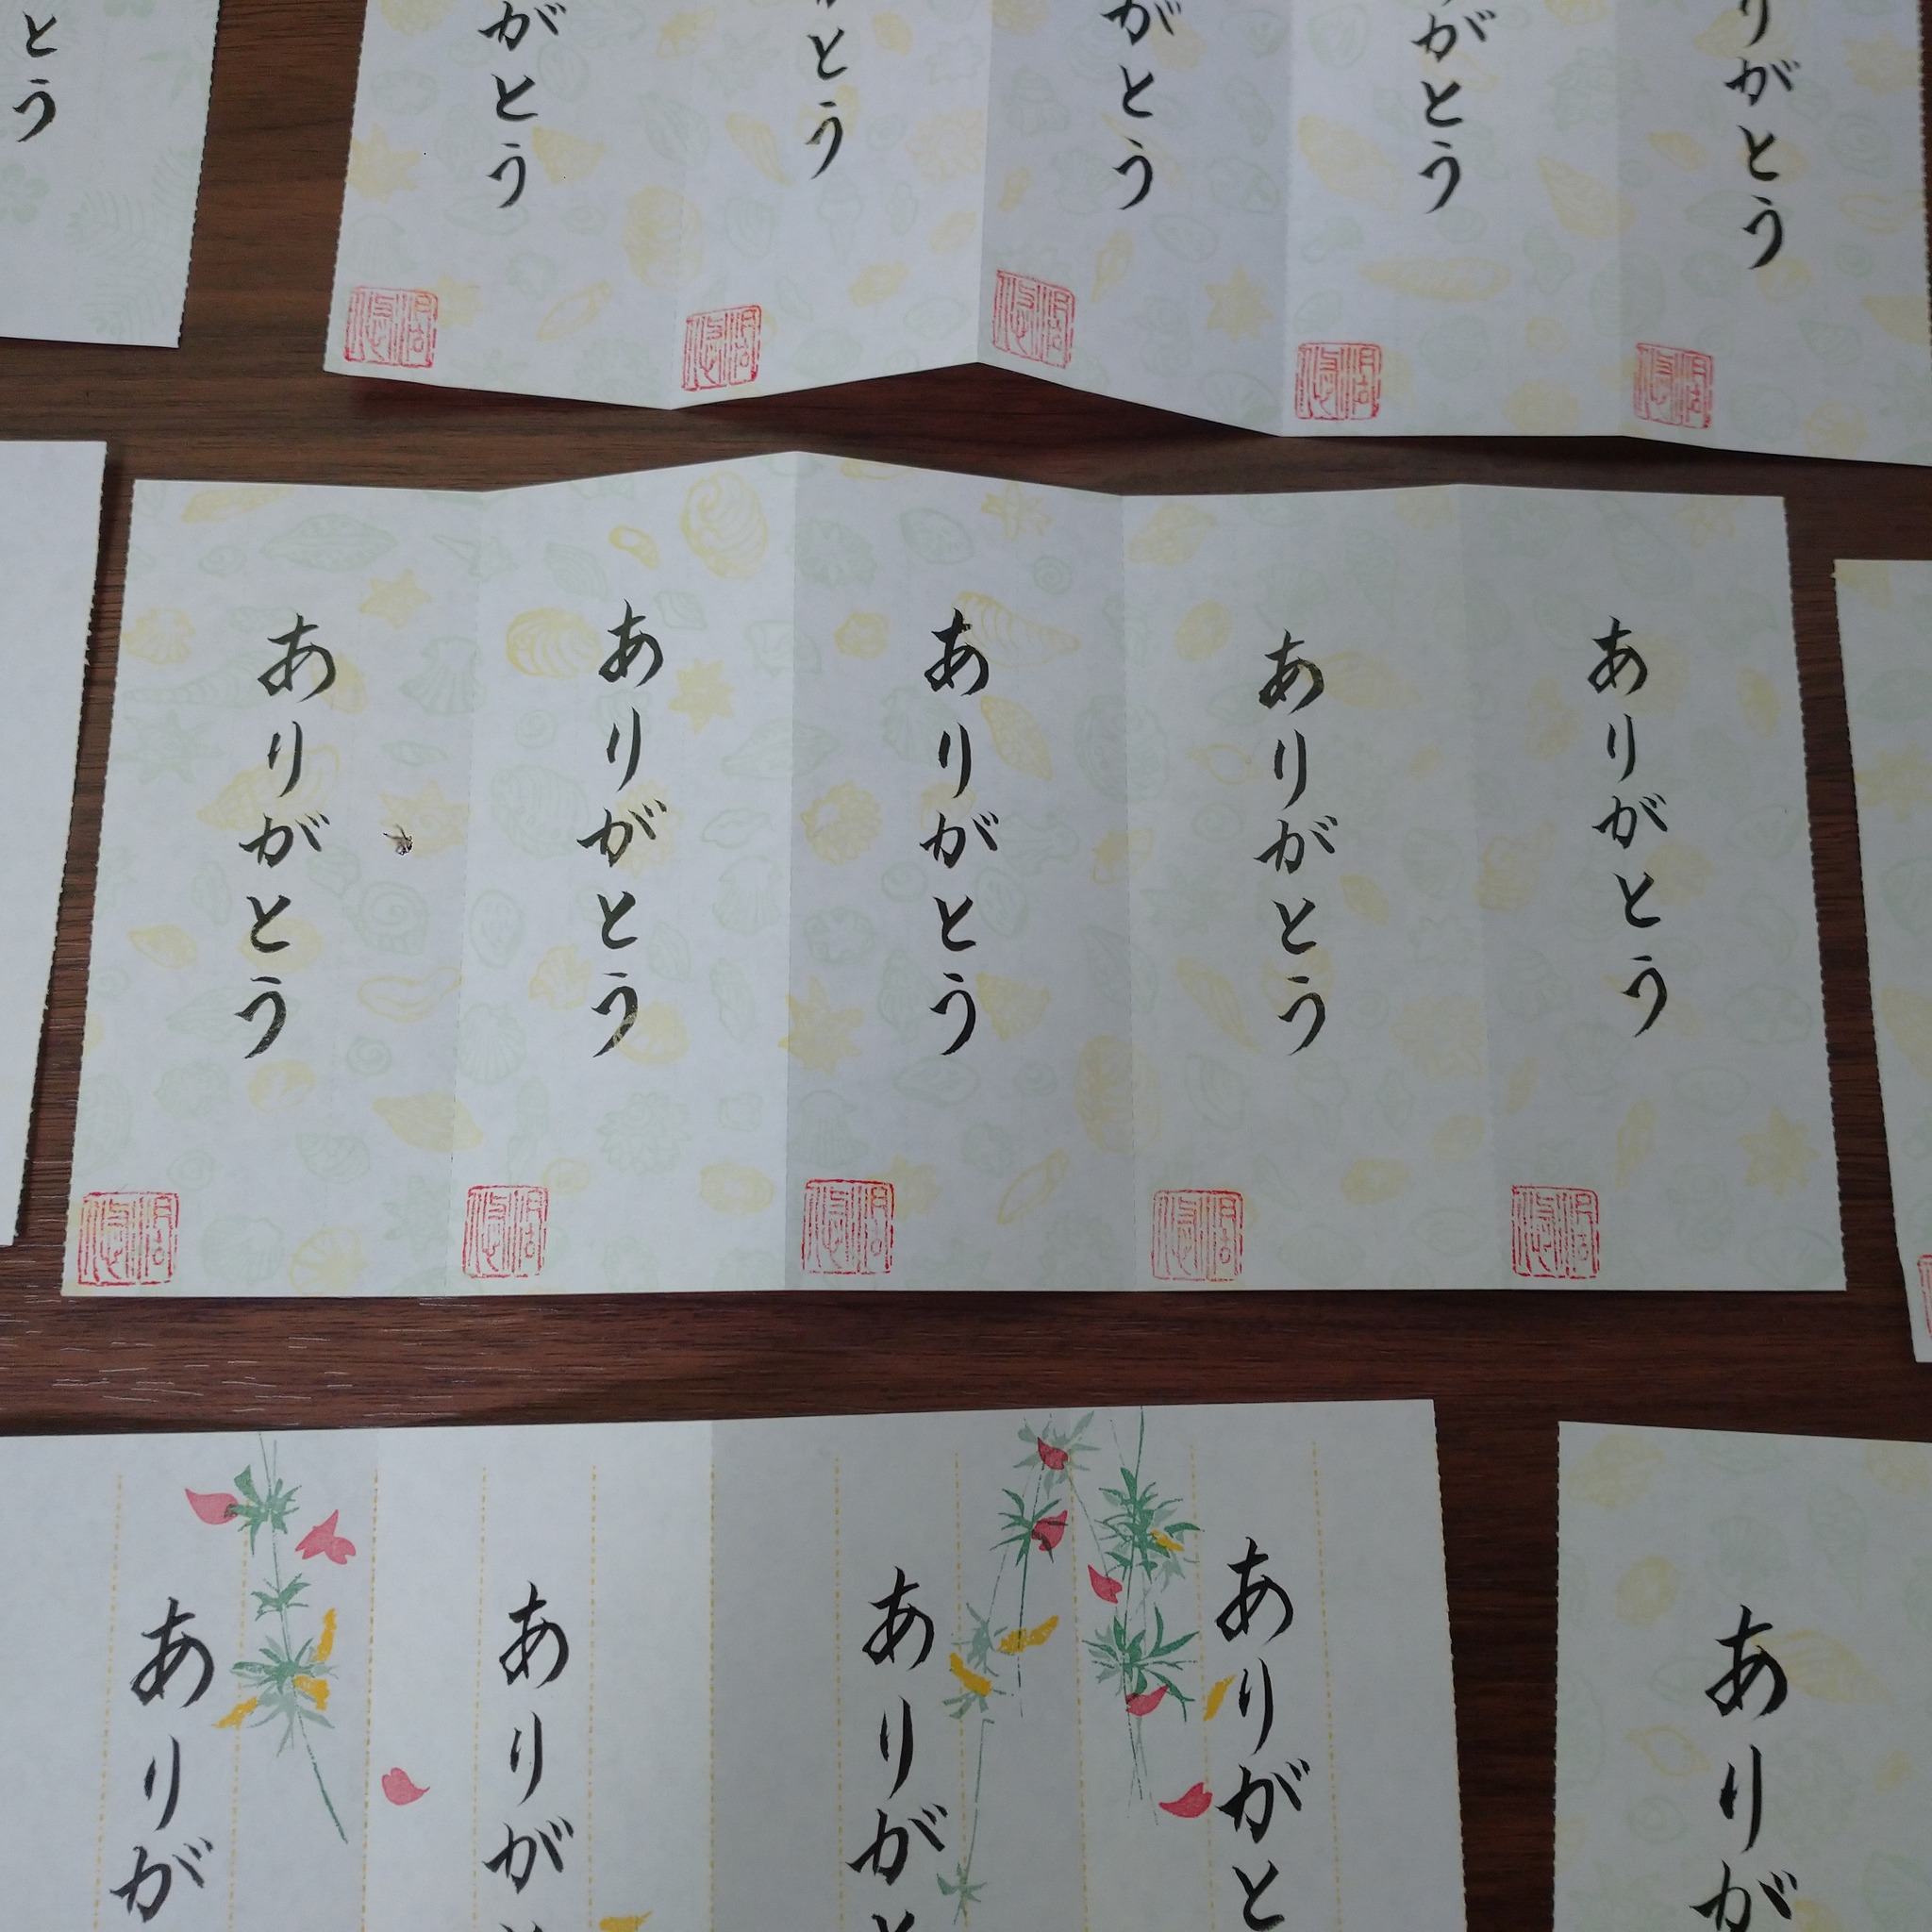 りがとう
がとう
がとう
とう
がとう
とう
ありがとう
ありがとう
ありがとう
ありがとう
ありがとう
ありが
ありがと
ありがと
ありが
ありが